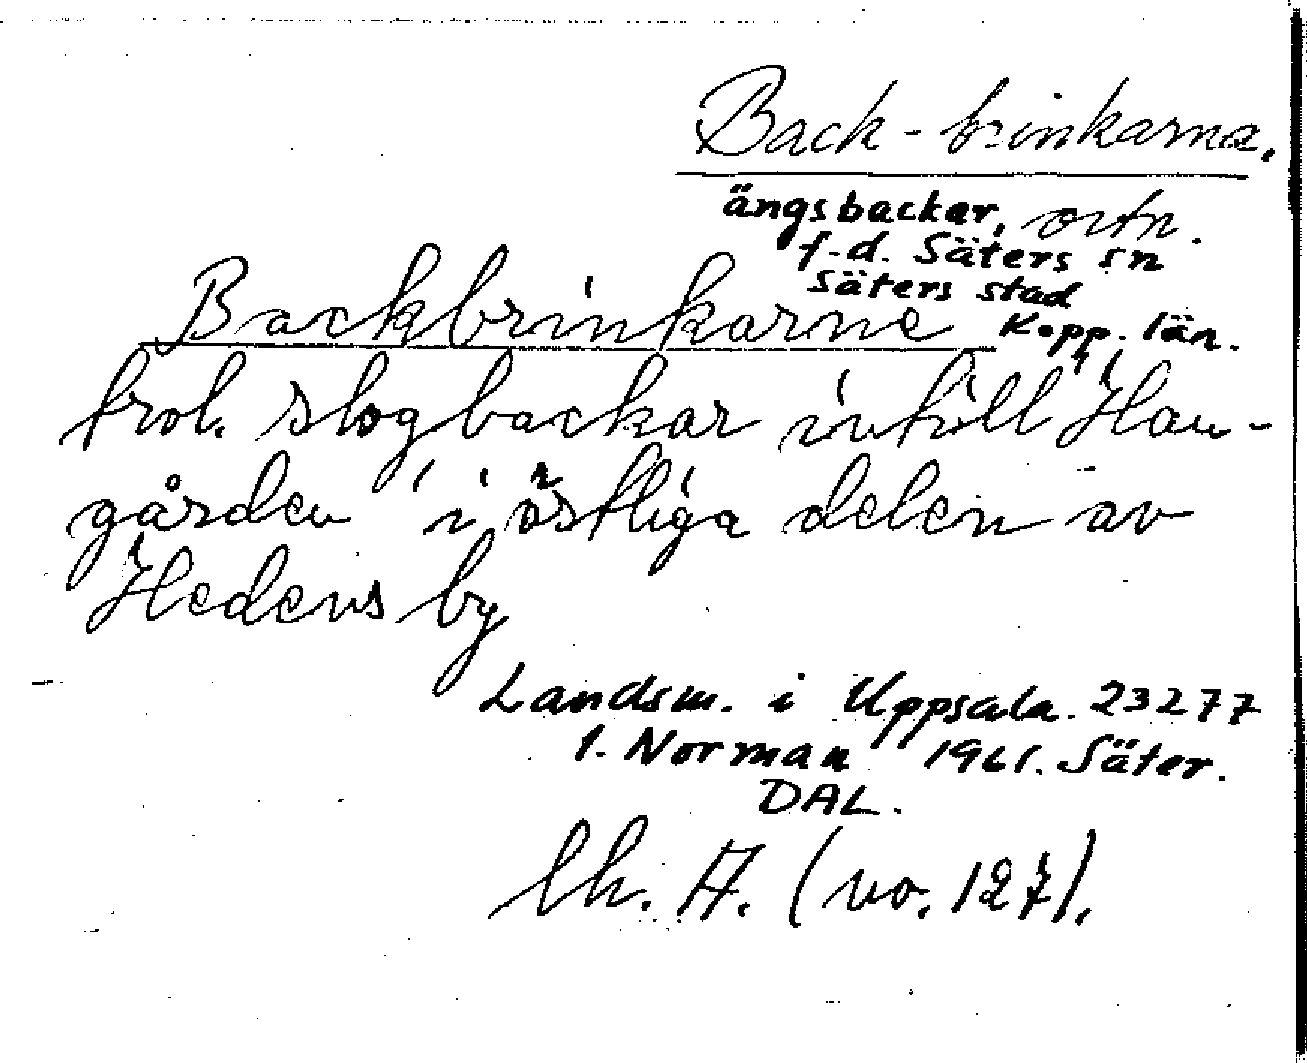 Back-brinkarna.
ängsbackar, ortn.
f.d. Säters sn
Säters stad
Kopp. län.
Backbrinkarne
trol. slogbackar intill "Han-
gården" i östliga delen av
Hedens by
Landsm. i Uppsala. 23277
I. Norman 1961. Säter.
DAL.
Ch. A. (no. 127).